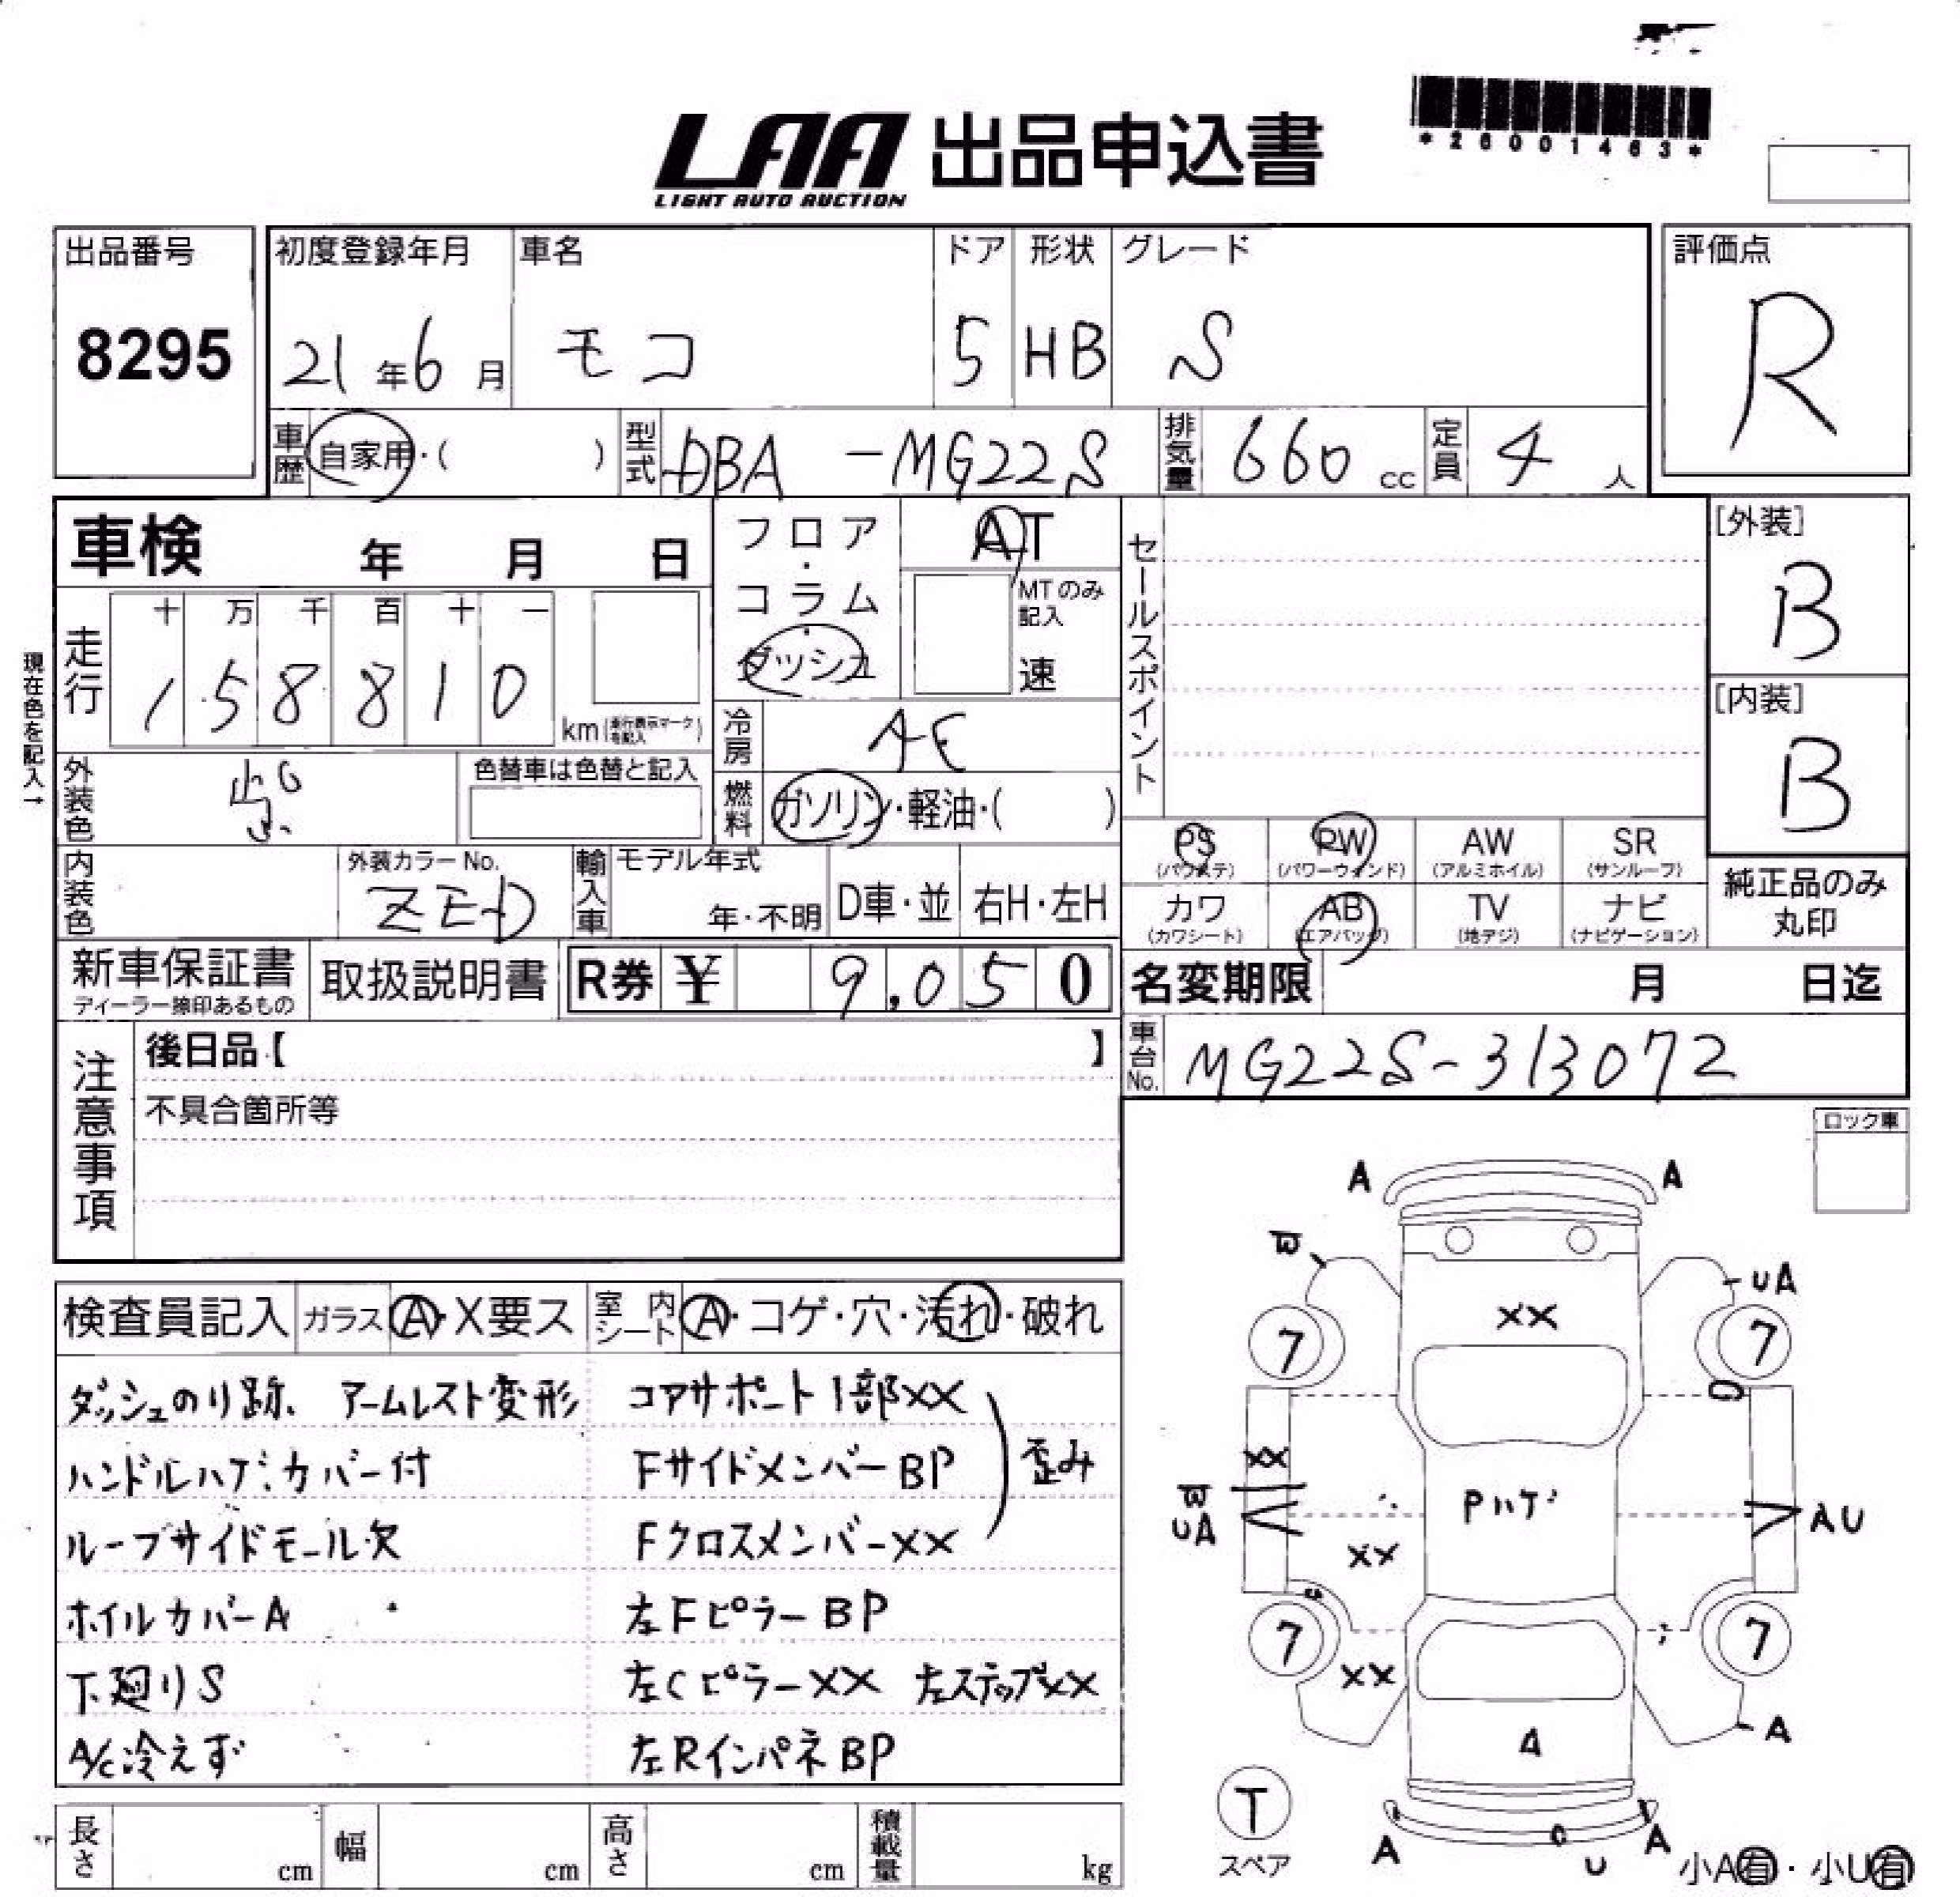 *26001463*
LAA 出品申込書
LIGHT AUTO AUCTION
出品番号
8295
初度登録年月
21年6月
車名
モコ
ドア
5
形状
HB
グレード
S
評価点
R
車歴 自家用・( )
型式 DBA -MG22S
排気量 660 cc
定員 4 人
車検 年 月 日
フロア・コラム・ダッシュ
AT
MTのみ記入
速
セールスポイント
[外装]
B
[内装]
B
現在色を記入→
走行
十 万 千 百 十 一
1 5 8 8 1 0
km(走行表示マークを記入)
冷房 AC
外装色 紫
色替車は色替と記入
燃料 ガソリン・軽油・( )
PS (パワステ)
PW (パワーウィンド)
AW (アルミホイル)
SR (サンルーフ)
カワ (カワシート)
AB (エアバッグ)
TV (地デジ)
ナビ (ナビゲーション)
純正品のみ
丸印
内装色
外装カラーNo.
ZED
輸入車
モデル年式
年・不明
D車・並
右H・左H
新車保証書
ディーラー捺印あるもの
取扱説明書
R券 ¥ 9,050
名変期限 月 日迄
車台No. MG22S-313072
注意事項
後日品【 】
不具合箇所等
ロック車
検査員記入
ガラス A・X要ス
室内シート A・コゲ・穴・汚れ・破れ
ダッシュのり跡、アームレスト変形
ハンドルハゲ:カバー付
ルーフサイドモール欠
ホイルカバーA
下廻りS
A/C冷えず
コアサポート1部XX
FサイドメンバーBP
FクロスメンバーXX
歪み
左FピラーBP
左CピラーXX 左ステップXX
左RインパネBP
A
A
UA
XX
7
7
XX
Pハゲ
UA
AU
XX
7
7
XX
A
A
T
スペア
A
U
A
小A有・小U有
長さ cm
幅 cm
高さ cm
積載量 kg